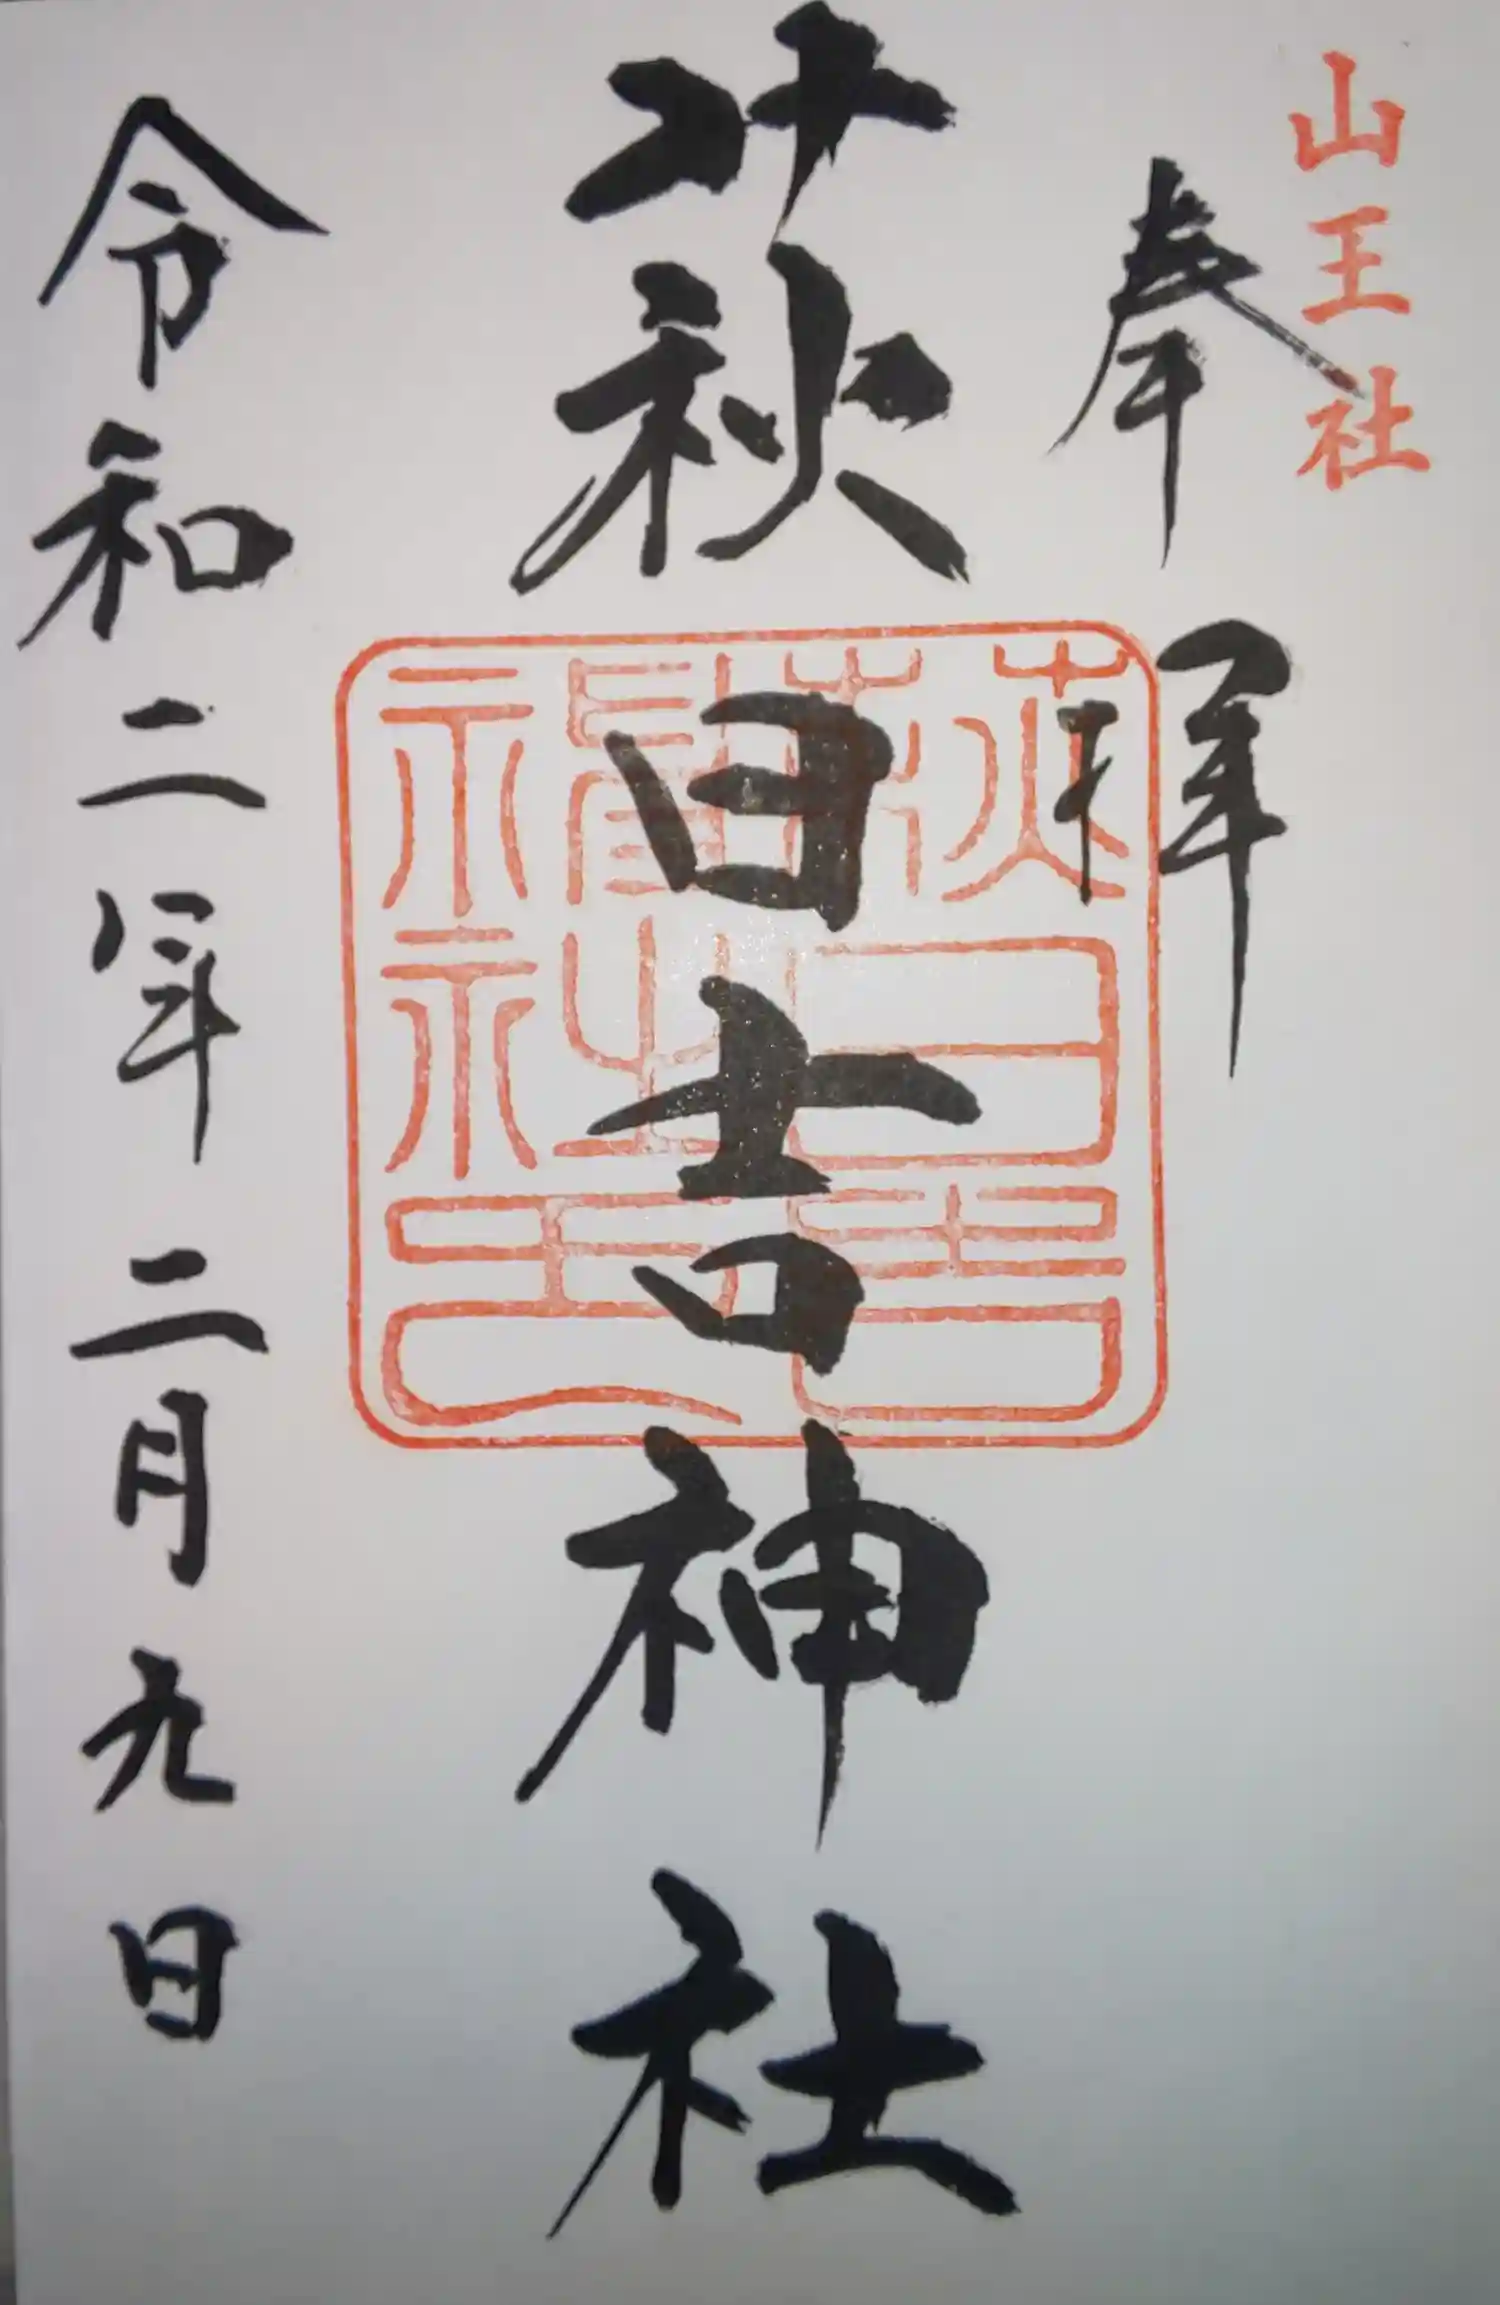 山王社
奉拝
萩日吉神社
萩日吉
神社
令和二年二月九日